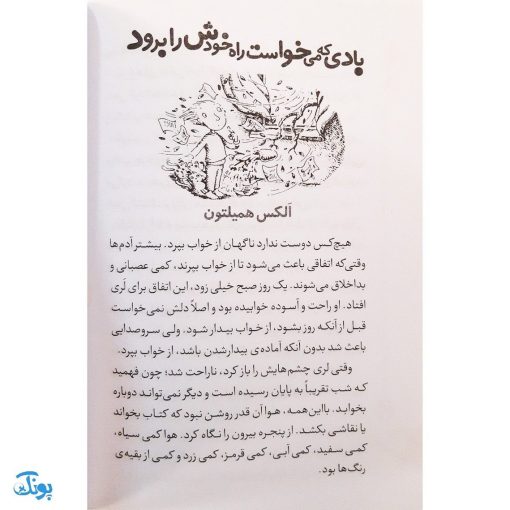 بادی که می‌خواست راه خودش را برود
آلکس همیلتون
هیچ‌کس دوست ندارد ناگهان از خواب بپرد. بیشتر آدم‌ها
وقتی‌که اتفاقی باعث می‌شود تا از خواب بپرند، کمی عصبانی و
بداخلاق می‌شوند. یک روز صبح خیلی زود، این اتفاق برای لری
افتاد. او راحت و آسوده خوابیده بود و اصلاً دلش نمی‌خواست
قبل از آنکه روز بشود، از خواب بیدار شود. ولی سروصدایی
باعث شد بدون آنکه آماده‌ی بیدارشدن باشد، از خواب بپرد.
وقتی لری چشم‌هایش را باز کرد، ناراحت شد؛ چون فهمید
که شب تقریباً به پایان رسیده است و دیگر نمی‌تواند دوباره
بخوابد. بااین‌همه، هوا آن قدر روشن نبود که کتاب بخواند
یا نقاشی بکشد. از پنجره بیرون را نگاه کرد. هوا کمی سیاه،
کمی سفید، کمی آبی، کمی قرمز، کمی زرد و کمی از بقیه‌ی
رنگ‌ها بود.
پونک